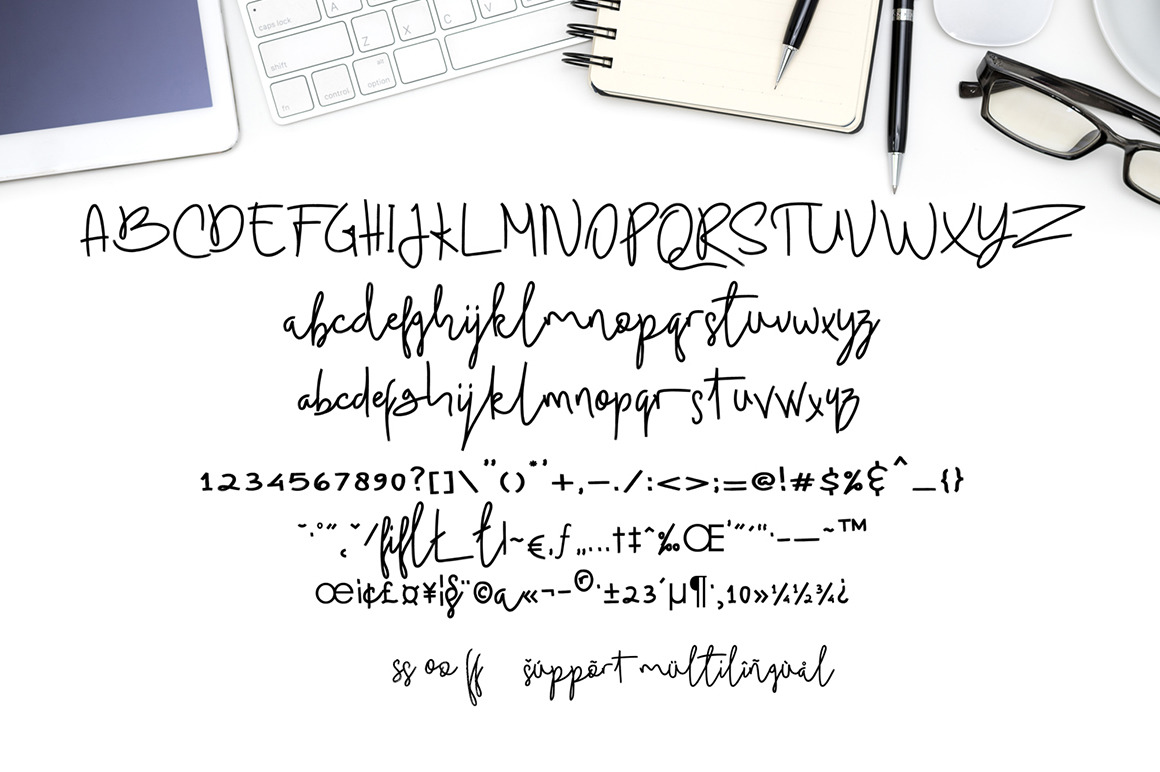 caps lock A
Z X C V
shift
alt
fn control option
ABCDEFGHIJKLMNOPQRSTUVWXYZ
abcdefghijklmnopqrstuvwxyz
abcdefghijklmnopqrstuvwxyz
1234567890?[]\"()*'+,-./:<>;=@!#$%&^_{}
fiflt_tl~€,ƒ„…†‡ˆ‰Œ'˝´"·-—˜™
œ¡¢£¤¥¦§¨©a«¬-®·±23´µ¶·,10»¼½¾¿
ss oo ff šúppõrt mültilîñgùål